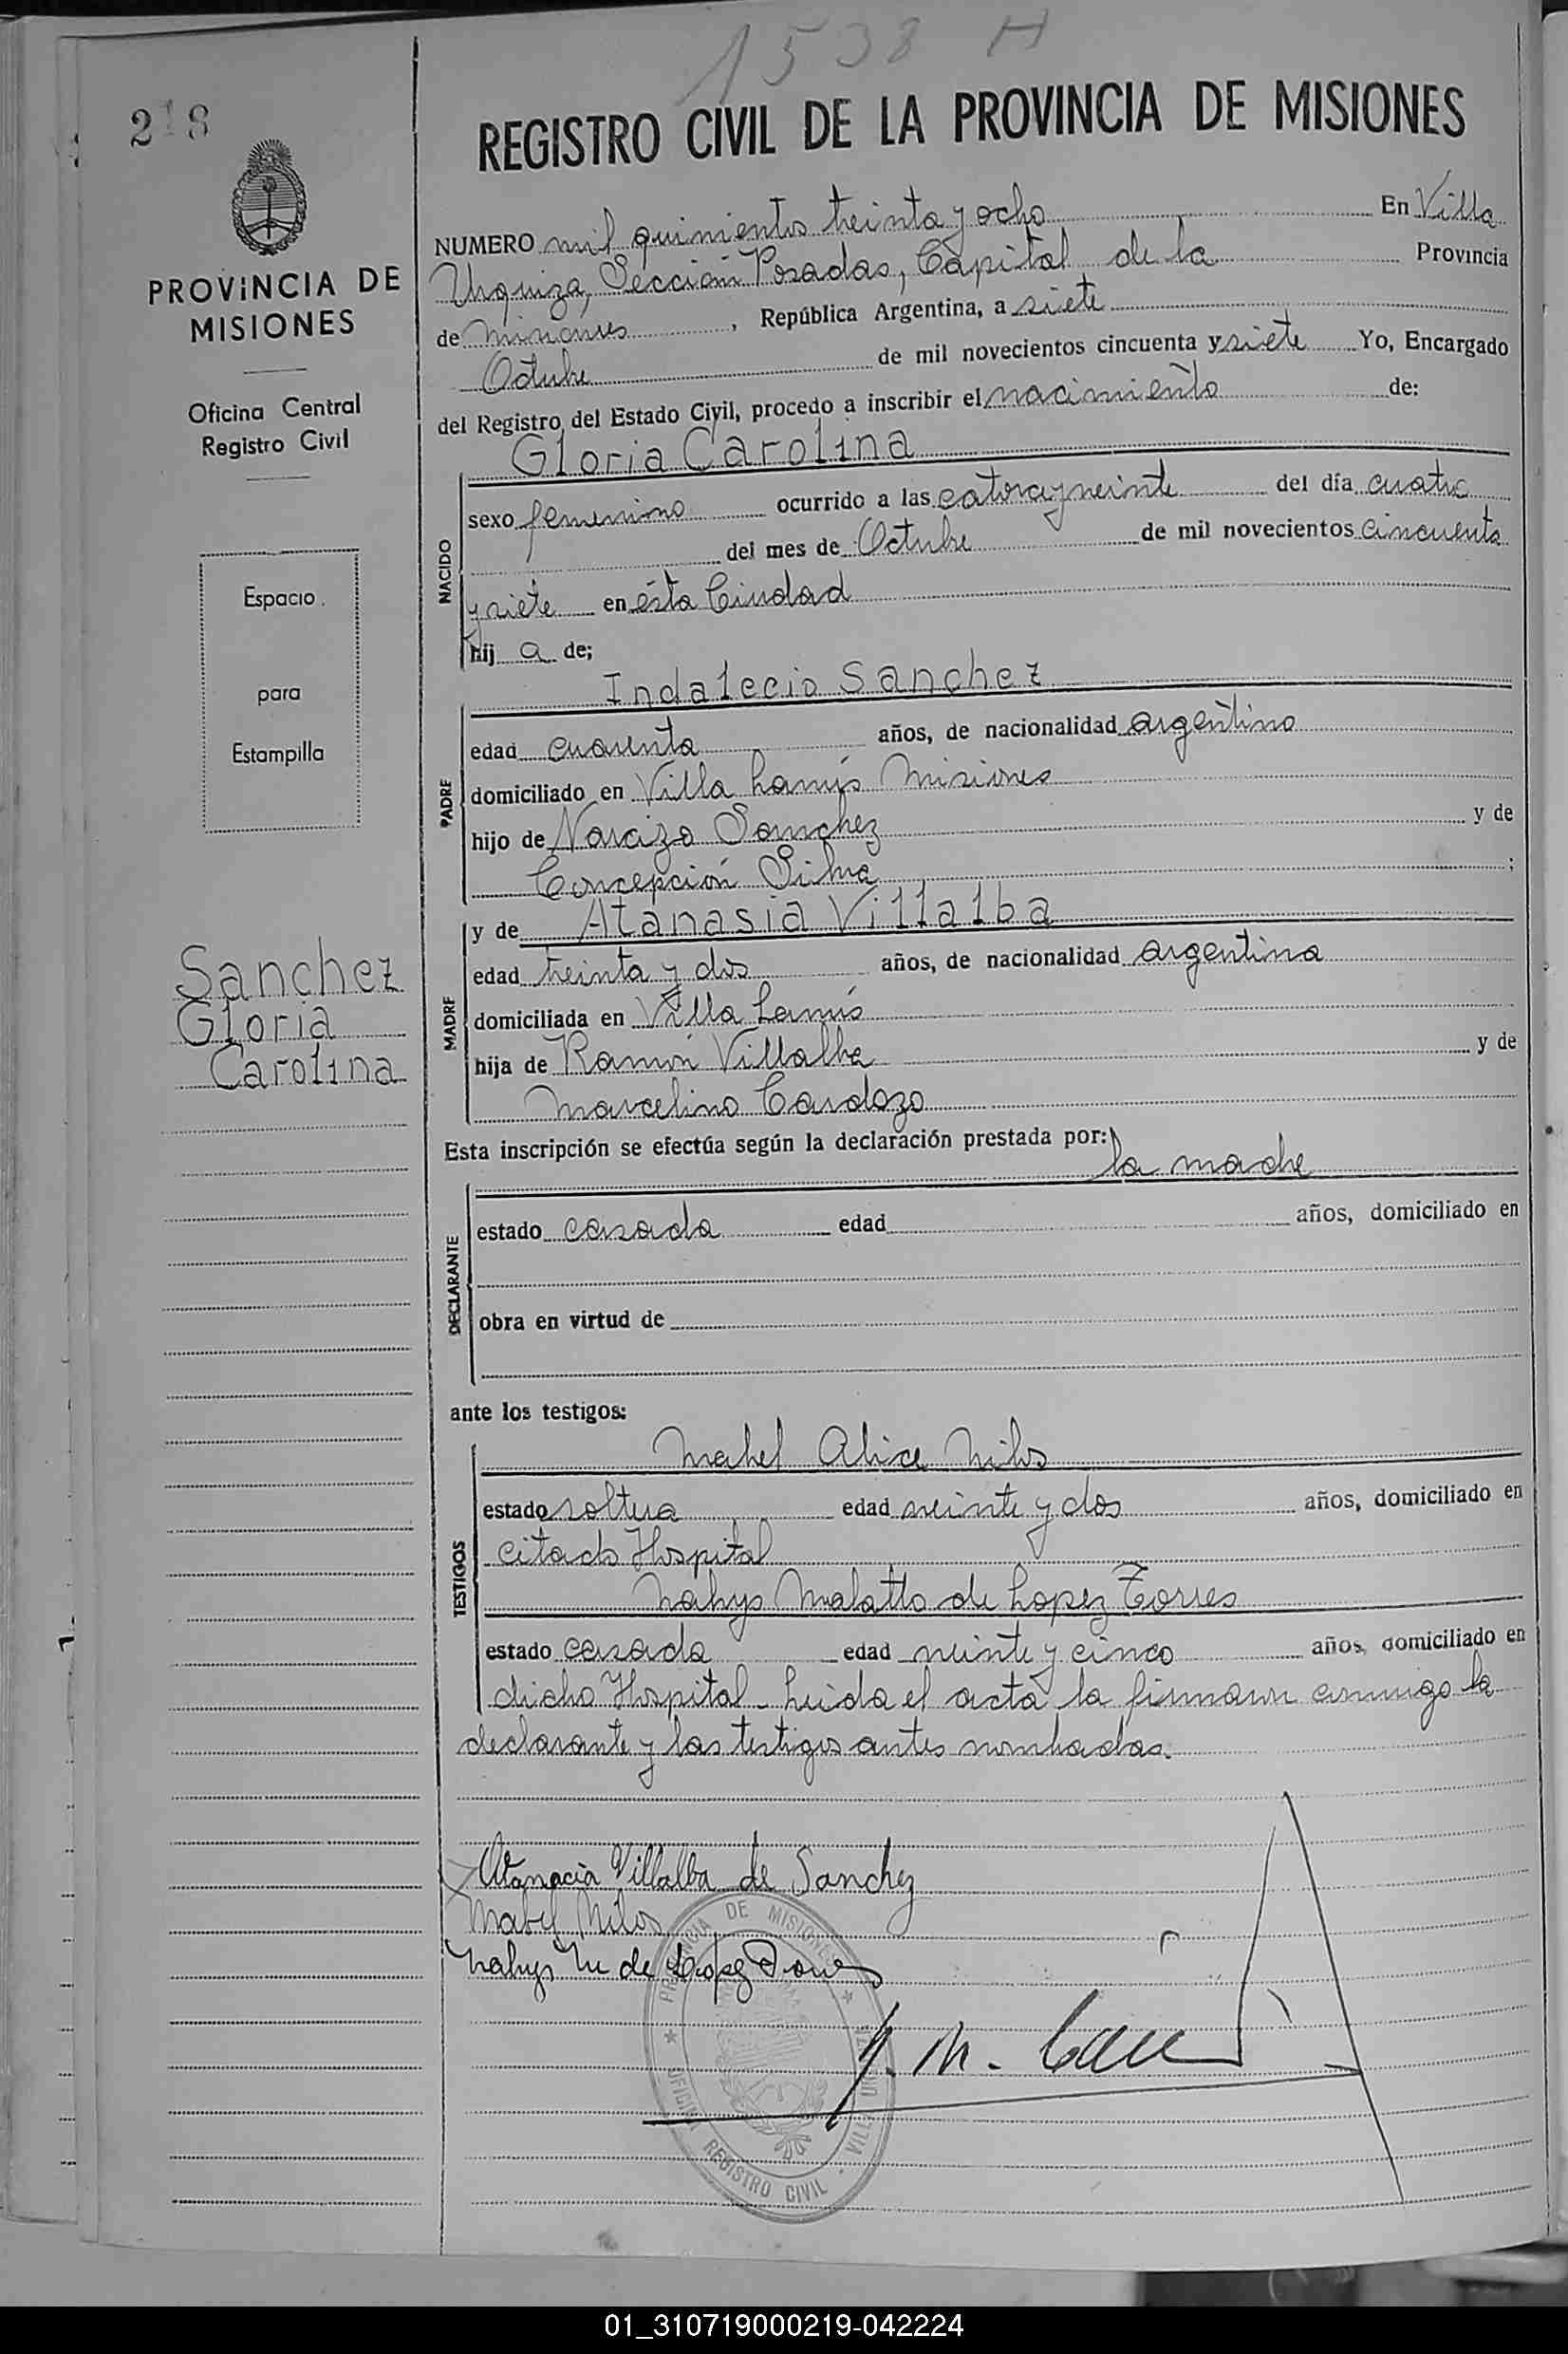 1538 H
218
REGISTRO CIVIL DE LA PROVINCIA DE MISIONES
PROVINCIA DE
MISIONES
Oficina Central
Registro Civil
Espacio
para
Estampilla
Sanchez
Gloria
Carolina
NUMERO mil quinientos treinta y ocho En Villa
Urquiza, Sección Posadas, Capital de la Provincia
de Misiones, República Argentina, a siete
Octubre de mil novecientos cincuenta y siete Yo, Encargado
del Registro del Estado Civil, procedo a inscribir el nacimiento de:
Gloria Carolina
NACIDO
sexo femenino ocurrido a las catorce y veinte del día cuatro
del mes de Octubre de mil novecientos cincuenta
y siete en ésta Ciudad
hij a de;
Indalecio Sanchez
PADRE
edad cuarenta años, de nacionalidad argentino
domiciliado en Villa Lanús Misiones
hijo de Narcizo Sanchez y de
Concepción Silva ;
MADRE
y de Atanasia Villalba
edad treinta y dos años, de nacionalidad argentina
domiciliada en Villa Lanús
hija de Ramón Villalba y de
Marcelino Cardozo
Esta inscripción se efectúa según la declaración prestada por:
la madre
DECLARANTE
estado casada edad años, domiciliado en
obra en virtud de
ante los testigos:
Mabel Alice Milos
TESTIGOS
estado soltera edad veinte y dos años, domiciliado en
citado Hospital
Nahys Malatto de Lopez Torres
estado casada edad veinte y cinco años, domiciliado en
dicho Hospital - Leida el acta la firmann conmigo la
declarante y las testigos antes nombradas.
Atanacia Villalba de Sanchez
Mabel Milos
Nahys M de Lopez Torres
PROVINCIA DE MISIONES
OFICINA REGISTRO CIVIL - VILLA
01_310719000219-042224